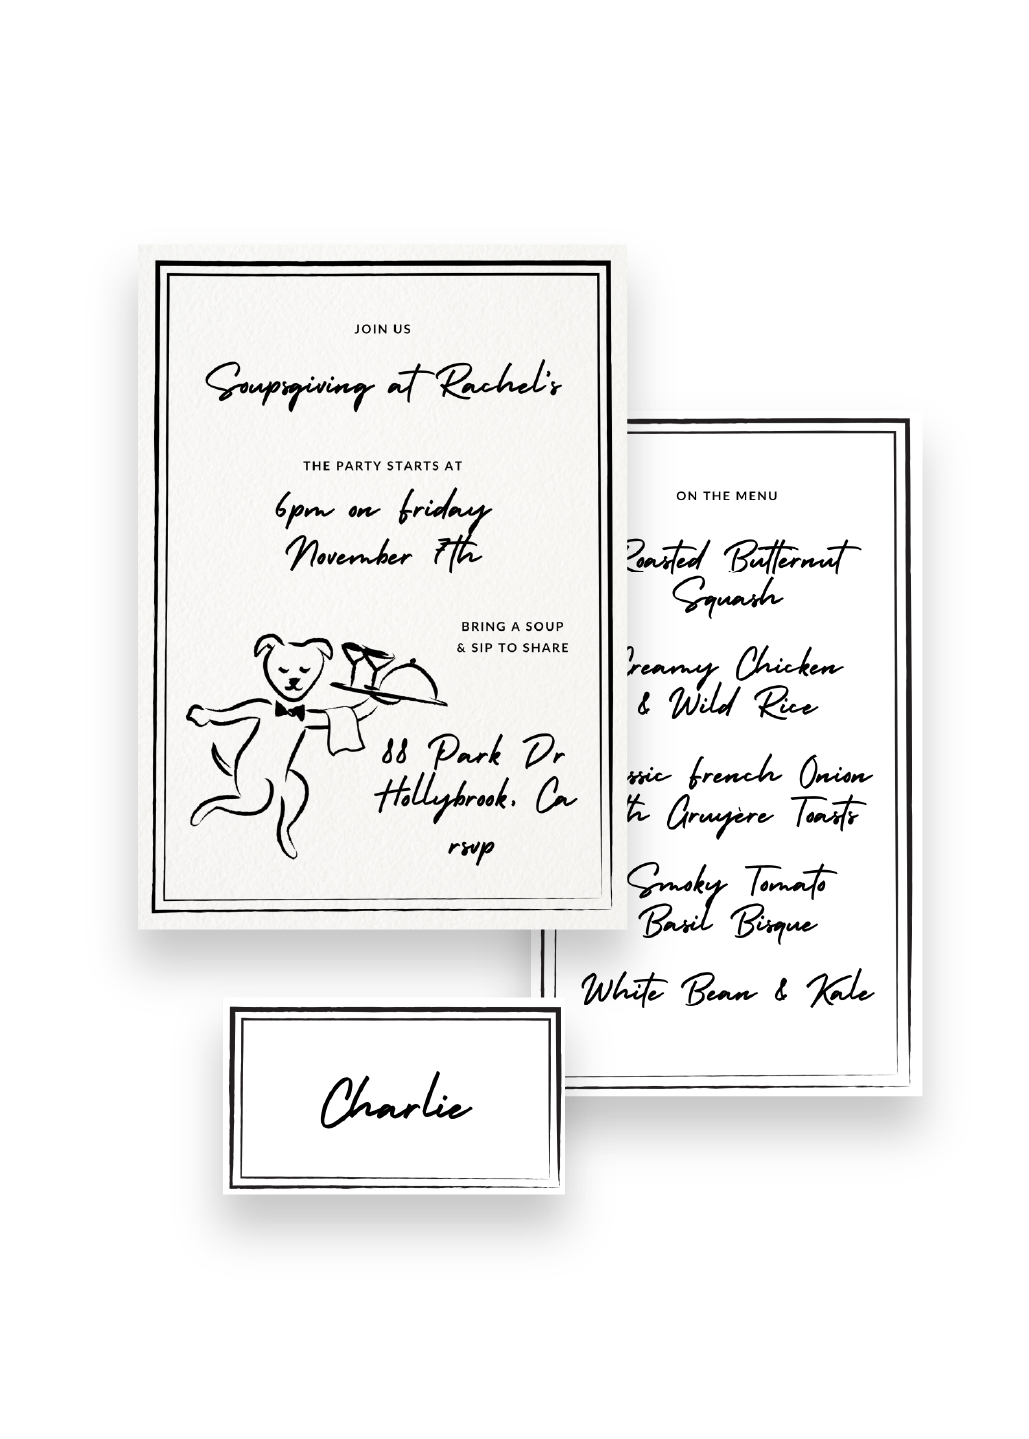 JOIN US
Soupsgiving at Rachel's
THE PARTY STARTS AT
6pm on friday
November 7th
BRING A SOUP
& SIP TO SHARE
88 Park Dr
Hollybrook, Ca
rsvp
ON THE MENU
Roasted Butternut
Squash
Creamy Chicken
& Wild Rice
french Onion
Gruyère Toasts
Smoky Tomato
Basil Bisque
White Bean & Kale
Charlie